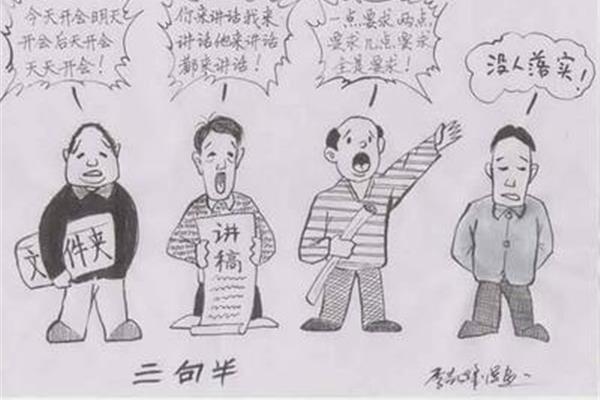 今天开会明天
开会后天开会
天天开会!
你来讲话我来
讲话他来讲话
都来讲话!
一点要求,两点
要求,几点要求
全是要求!
没人落实!
文件夹
讲
稿
三句半